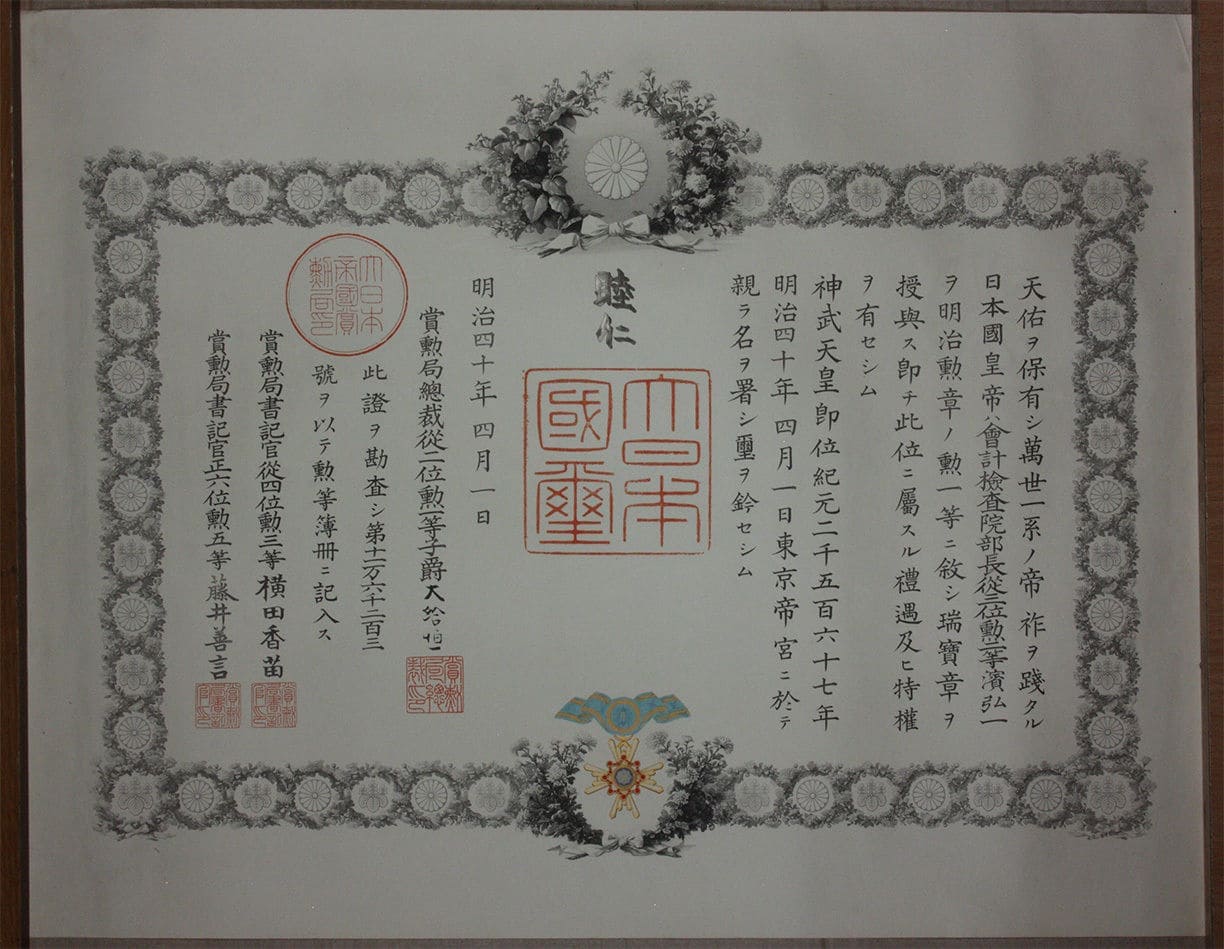 天佑ヲ保有シ萬世一系ノ帝祚ヲ踐タル
日本國皇帝ハ會計檢査院部長從三位勲二等濱弘一
ヲ明治勲章ノ勲一等ニ敘シ瑞寶章ヲ
授與ス卽チ此位ニ屬スル禮遇及ヒ特權
ヲ有セシム
神武天皇卽位紀元二千五百六十七年
明治四十年四月一日東京帝宮ニ於テ
親ラ名ヲ署シ璽ヲ鈐セシム
睦仁
大日本
國璽
明治四十年四月一日
賞勲局總裁從二位勲一等子爵大給恒
賞勲局總裁印
大日本
帝國賞
勲局印
此證ヲ勘査シ第十一万六千二百三
號ヲ以テ勲等簿册ニ記入ス
賞勲局書記官從四位勲三等橫田香苗
賞勲局書記官正六位勲五等藤井善言